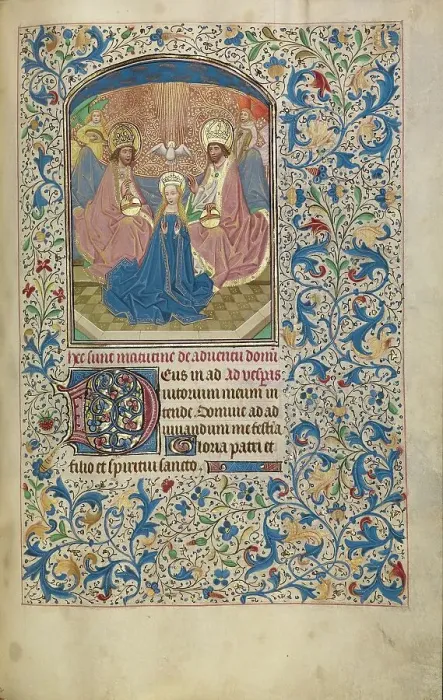 hec sunt mutacine de aduentu domini
Deus in ad Ad vesperas
iutorium meum in
tende. Domine ad ad
iuuandum me festia
Gloria patri et
filio et spiritui sancto.